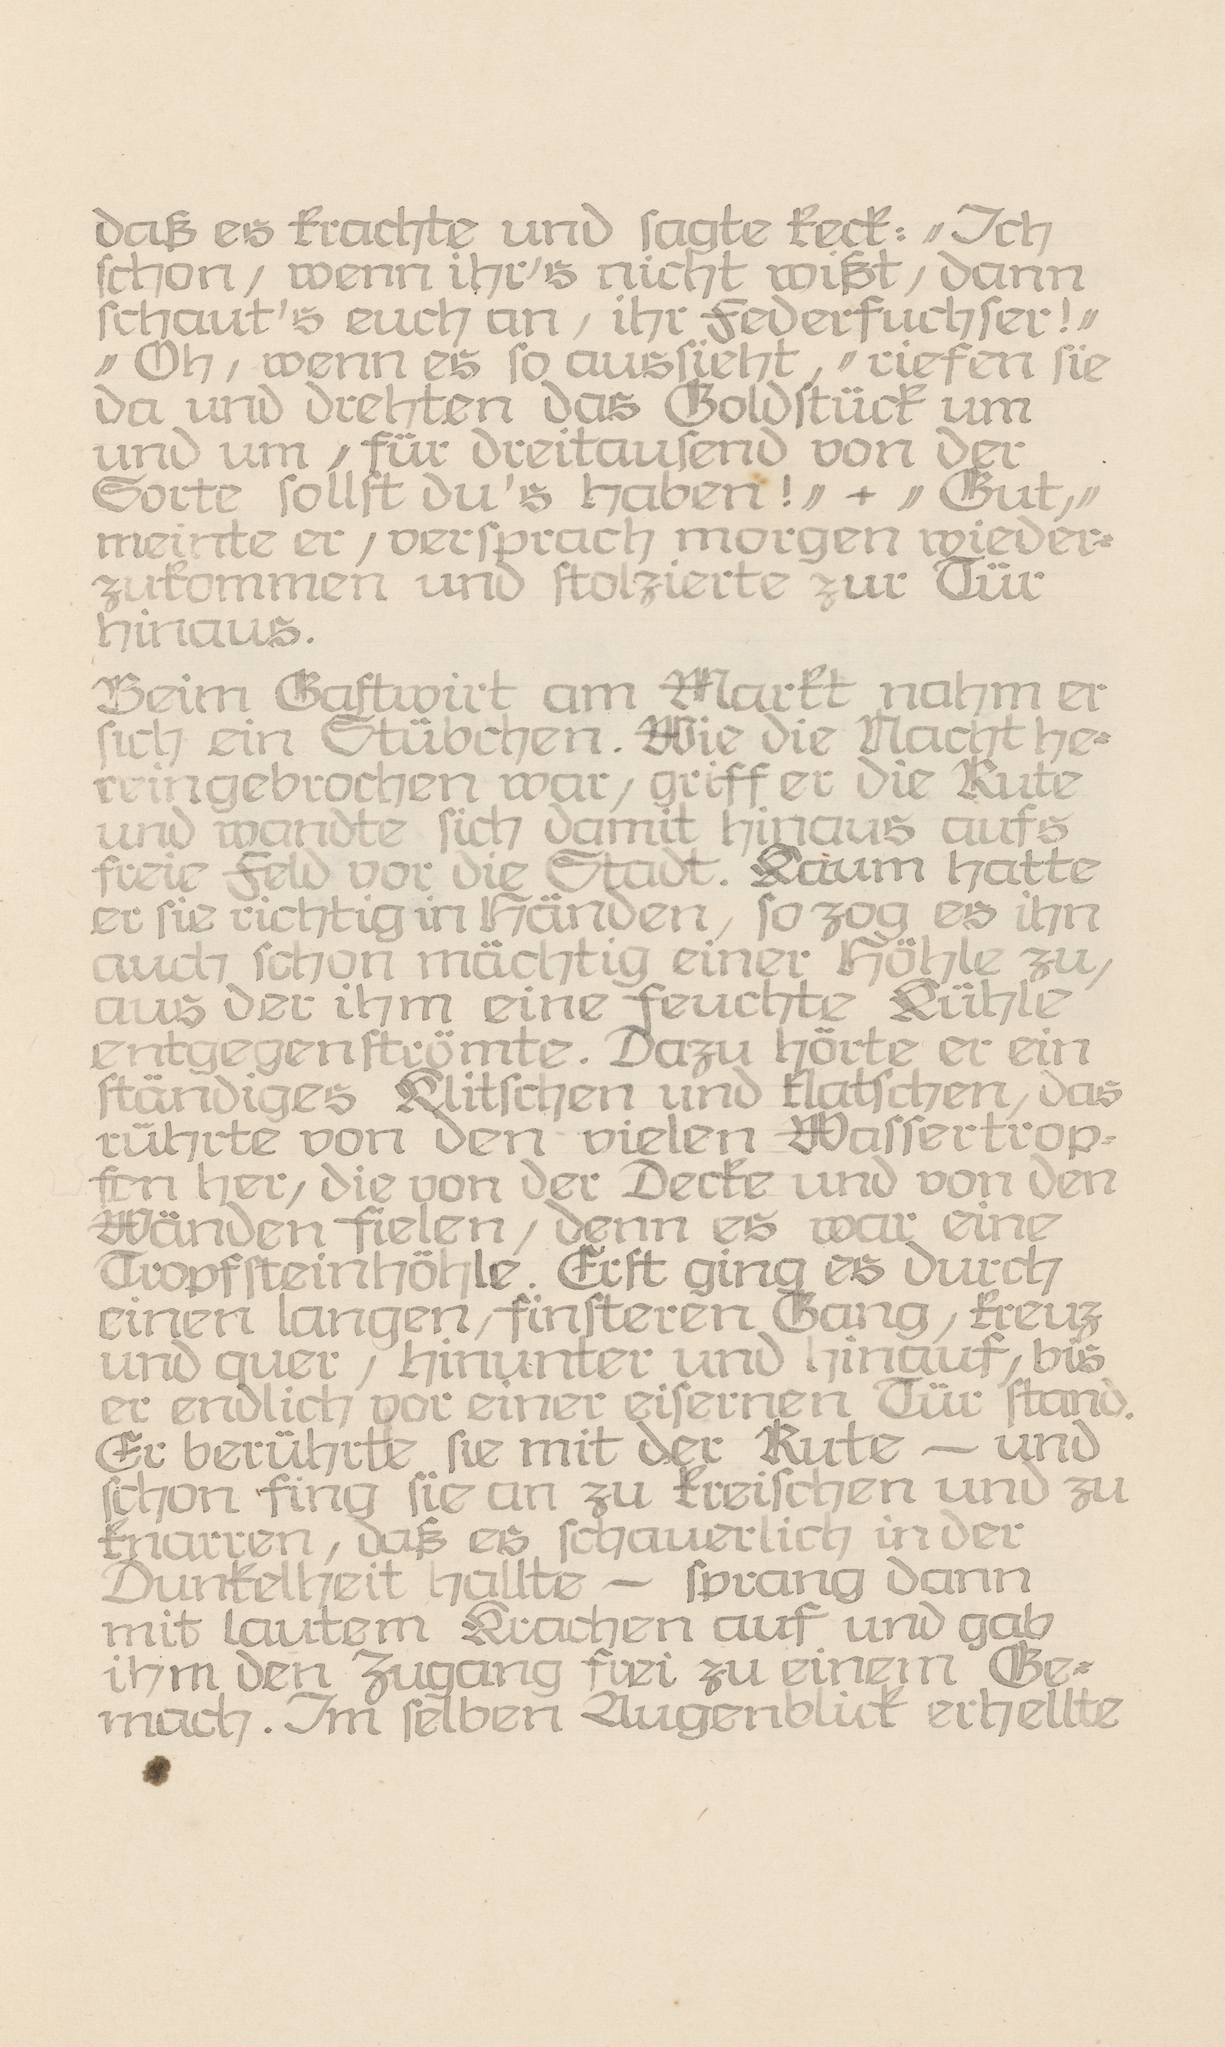 daß es krachte und sagte keck: „Ich
schon, wenn ihr's nicht wißt, dann
schaut's euch an, ihr Federfuchser!"
„Oh, wenn es so aussieht," riefen sie
da und drehten das Goldstück um
und um, „für dreitausend von der
Sorte sollst du's haben!" + „Gut,"
meinte er, versprach morgen wieder-
zukommen und stolzierte zur Tür
hinaus.
Beim Gastwirt am Markt nahm er
sich ein Stübchen. Wie die Nacht he-
reingebrochen war, griff er die Rute
und wandte sich damit hinaus aufs
freie Feld vor die Stadt. Kaum hatte
er sie richtig in Händen, so zog es ihn
auch schon mächtig einer Höhle zu,
aus der ihm eine feuchte Kühle
entgegenströmte. Dazu hörte er ein
ständiges Klitschen und klatschen, das
rührte von den vielen Wassertrop-
fen her, die von der Decke und von den
Wänden fielen, denn es war eine
Tropfsteinhöhle. Erst ging es durch
einen langen, finsteren Gang, kreuz
und quer, hinunter und hinauf, bis
er endlich vor einer eisernen Tür stand.
Er berührte sie mit der Rute — und
schon fing sie an zu kreischen und zu
knarren, daß es schauerlich in der
Dunkelheit hallte — sprang dann
mit lautem Krachen auf und gab
ihm den Zugang frei zu einem Ge-
mach. Im selben Augenblick erhellte